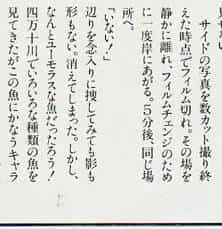 サイドの写真を数カット撮り終
えた時点でフィルム切れ。その場を
静かに離れ、フィルムチェンジのため
に一度岸にあがる。5分後、同じ場
所へ。
「いない！」
辺りを念入りに捜してみても影も
形もない。消えてしまった。しかし、
なんとユーモラスな魚だったろう！
四万十川でいろいろな種類の魚を
見てきたがこの魚にかなうキャラ